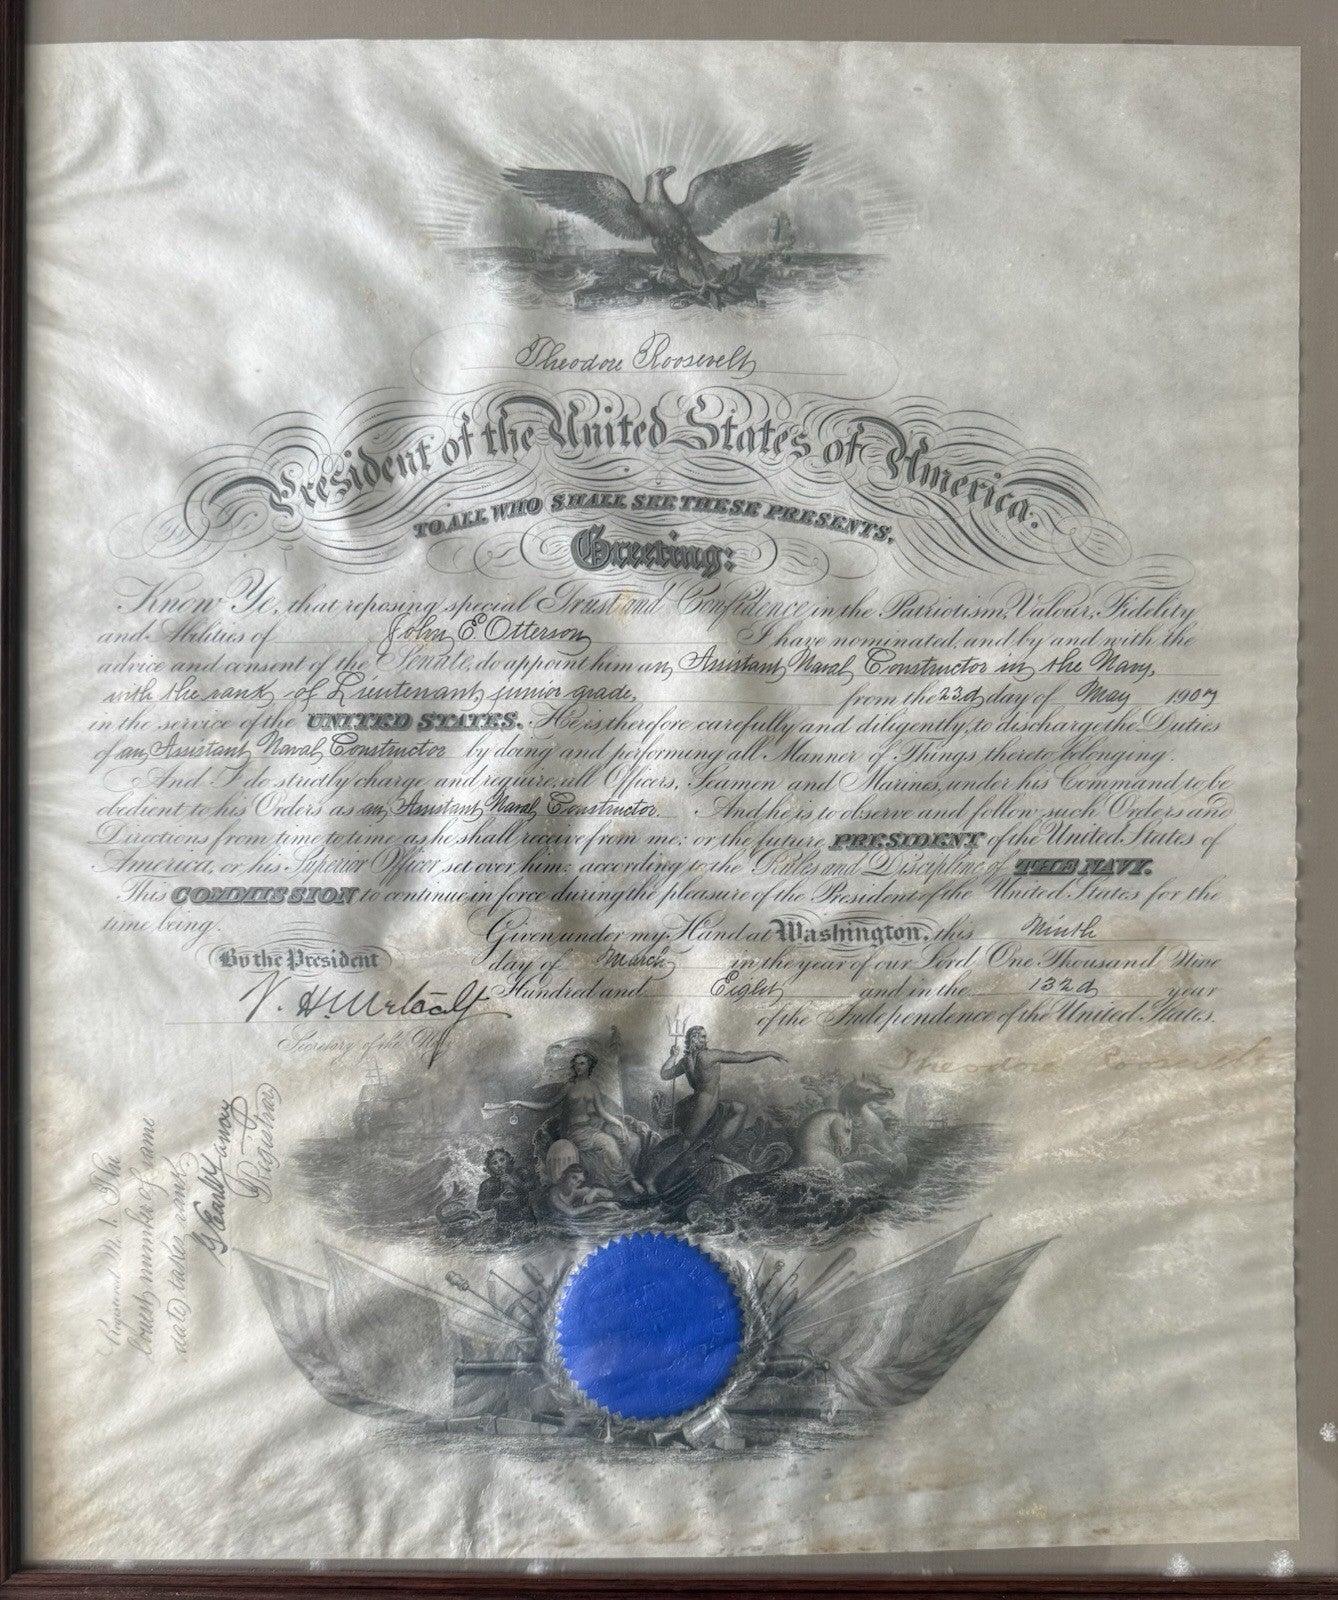 Theodore Roosevelt
President of the United States of America.
TO ALL WHO SHALL SEE THESE PRESENTS,
Greeting:
Know Ye, that reposing special Trust and Confidence in the Patriotism, Valour, Fidelity
and Abilities of John E Otterson I have nominated, and by and with the
advice and consent of the Senate, do appoint him an Assistant Naval Constructor in the Navy,
with the rank of Lieutenant, junior grade, from the 23d day of May 1907
in the service of the UNITED STATES. He is therefore carefully and diligently, to discharge the Duties
of an Assistant Naval Constructor by doing and performing all Manner of Things thereto belonging.
And I do strictly charge and require, all Officers, Seamen and Marines, under his Command to be
obedient to his Orders as an Assistant Naval Constructor. And he is to observe and follow such Orders and
Directions from time to time as he shall receive from me; or the future PRESIDENT of the United States of
America, or his Superior Officer set over him; according to the Rules and Discipline of THE NAVY.
This COMMISSION to continue in force during the pleasure of the President of the United States for the
time being.
Given under my Hand at Washington, this Ninth
day of March in the year of our Lord One Thousand Nine
Hundred and Eight and in the 132d year
of the Independence of the United States.
By the President
V. H. Metcalf
Secretary of the Navy
Theodore Roosevelt
Registered No. 1. The
lowest number of same
date takes rank.
Registrar